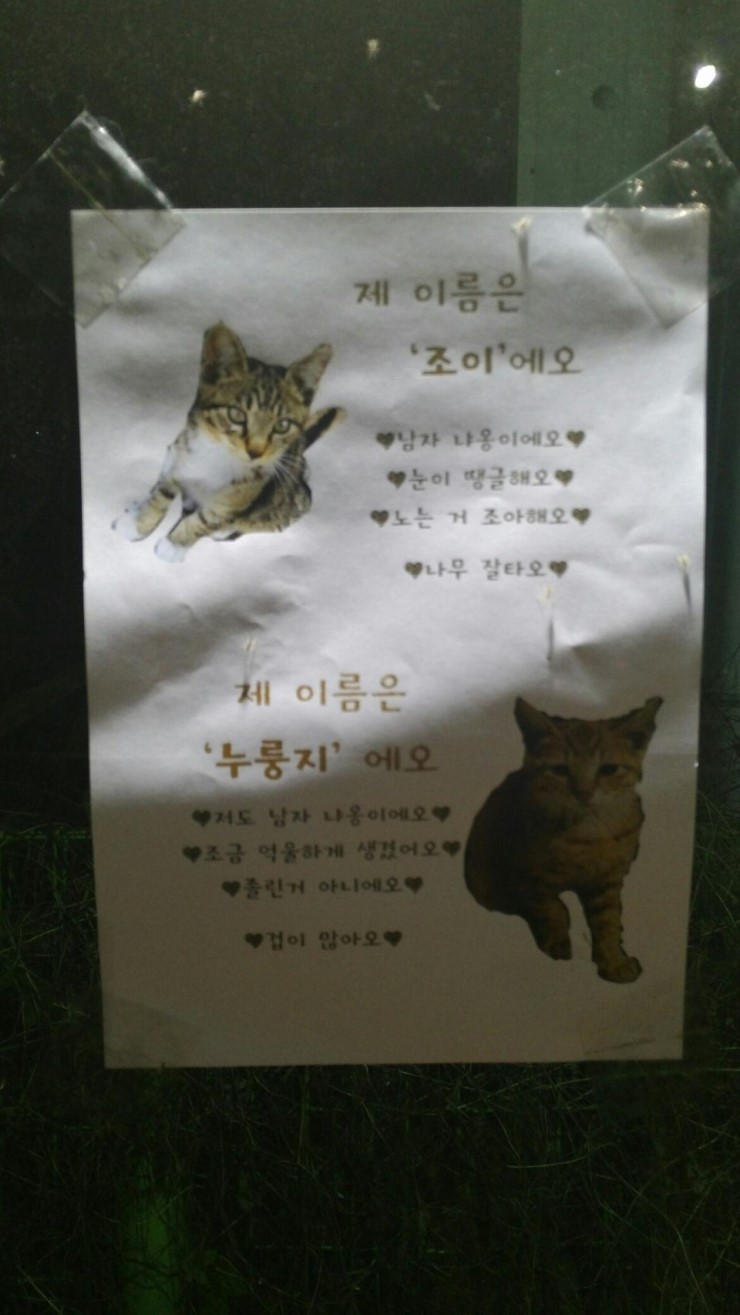 제 이름은
‘조이’에오
♥남자 냐옹이에오♥
♥눈이 땡글해오♥
♥노는 거 조아해오♥
♥나무 잘타오♥
제 이름은
‘누룽지’ 에오
♥저도 남자 냐옹이에오♥
♥조금 억울하게 생겼어오♥
♥졸린거 아니에오♥
♥겁이 많아오♥